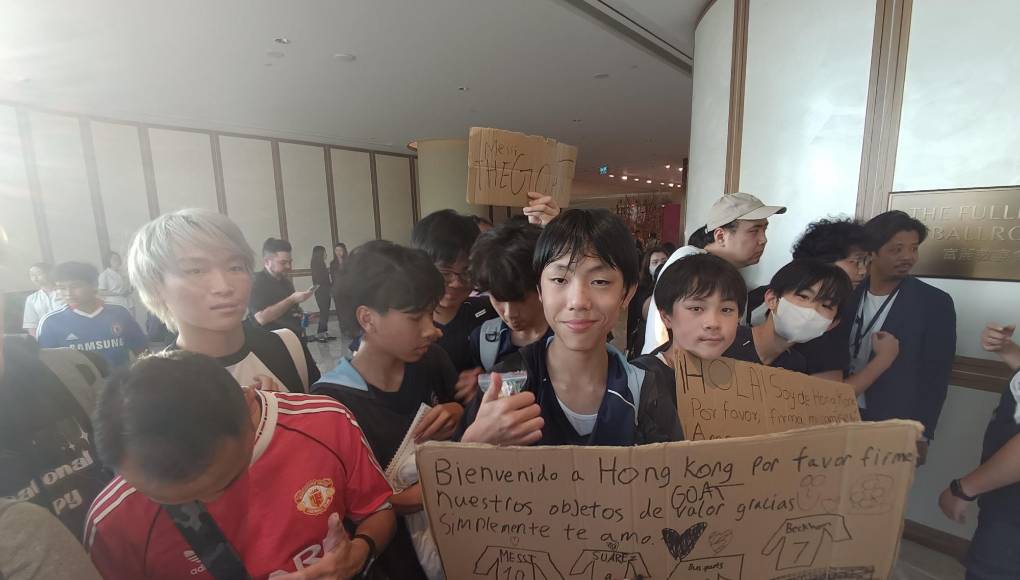 Messi
THE GOAT
THE FULL
BALLRO
SAMSUNG
¡HOLA! Soy de Hong Kong
Por favor, firma mi
Bienvenido a Hong Kong por favor firme
nuestros objetos de valor gracias
GOAT
Simplemente te amo.
MESSI
10
SUAREZ
9
Busquets
Beckham
7
adidas